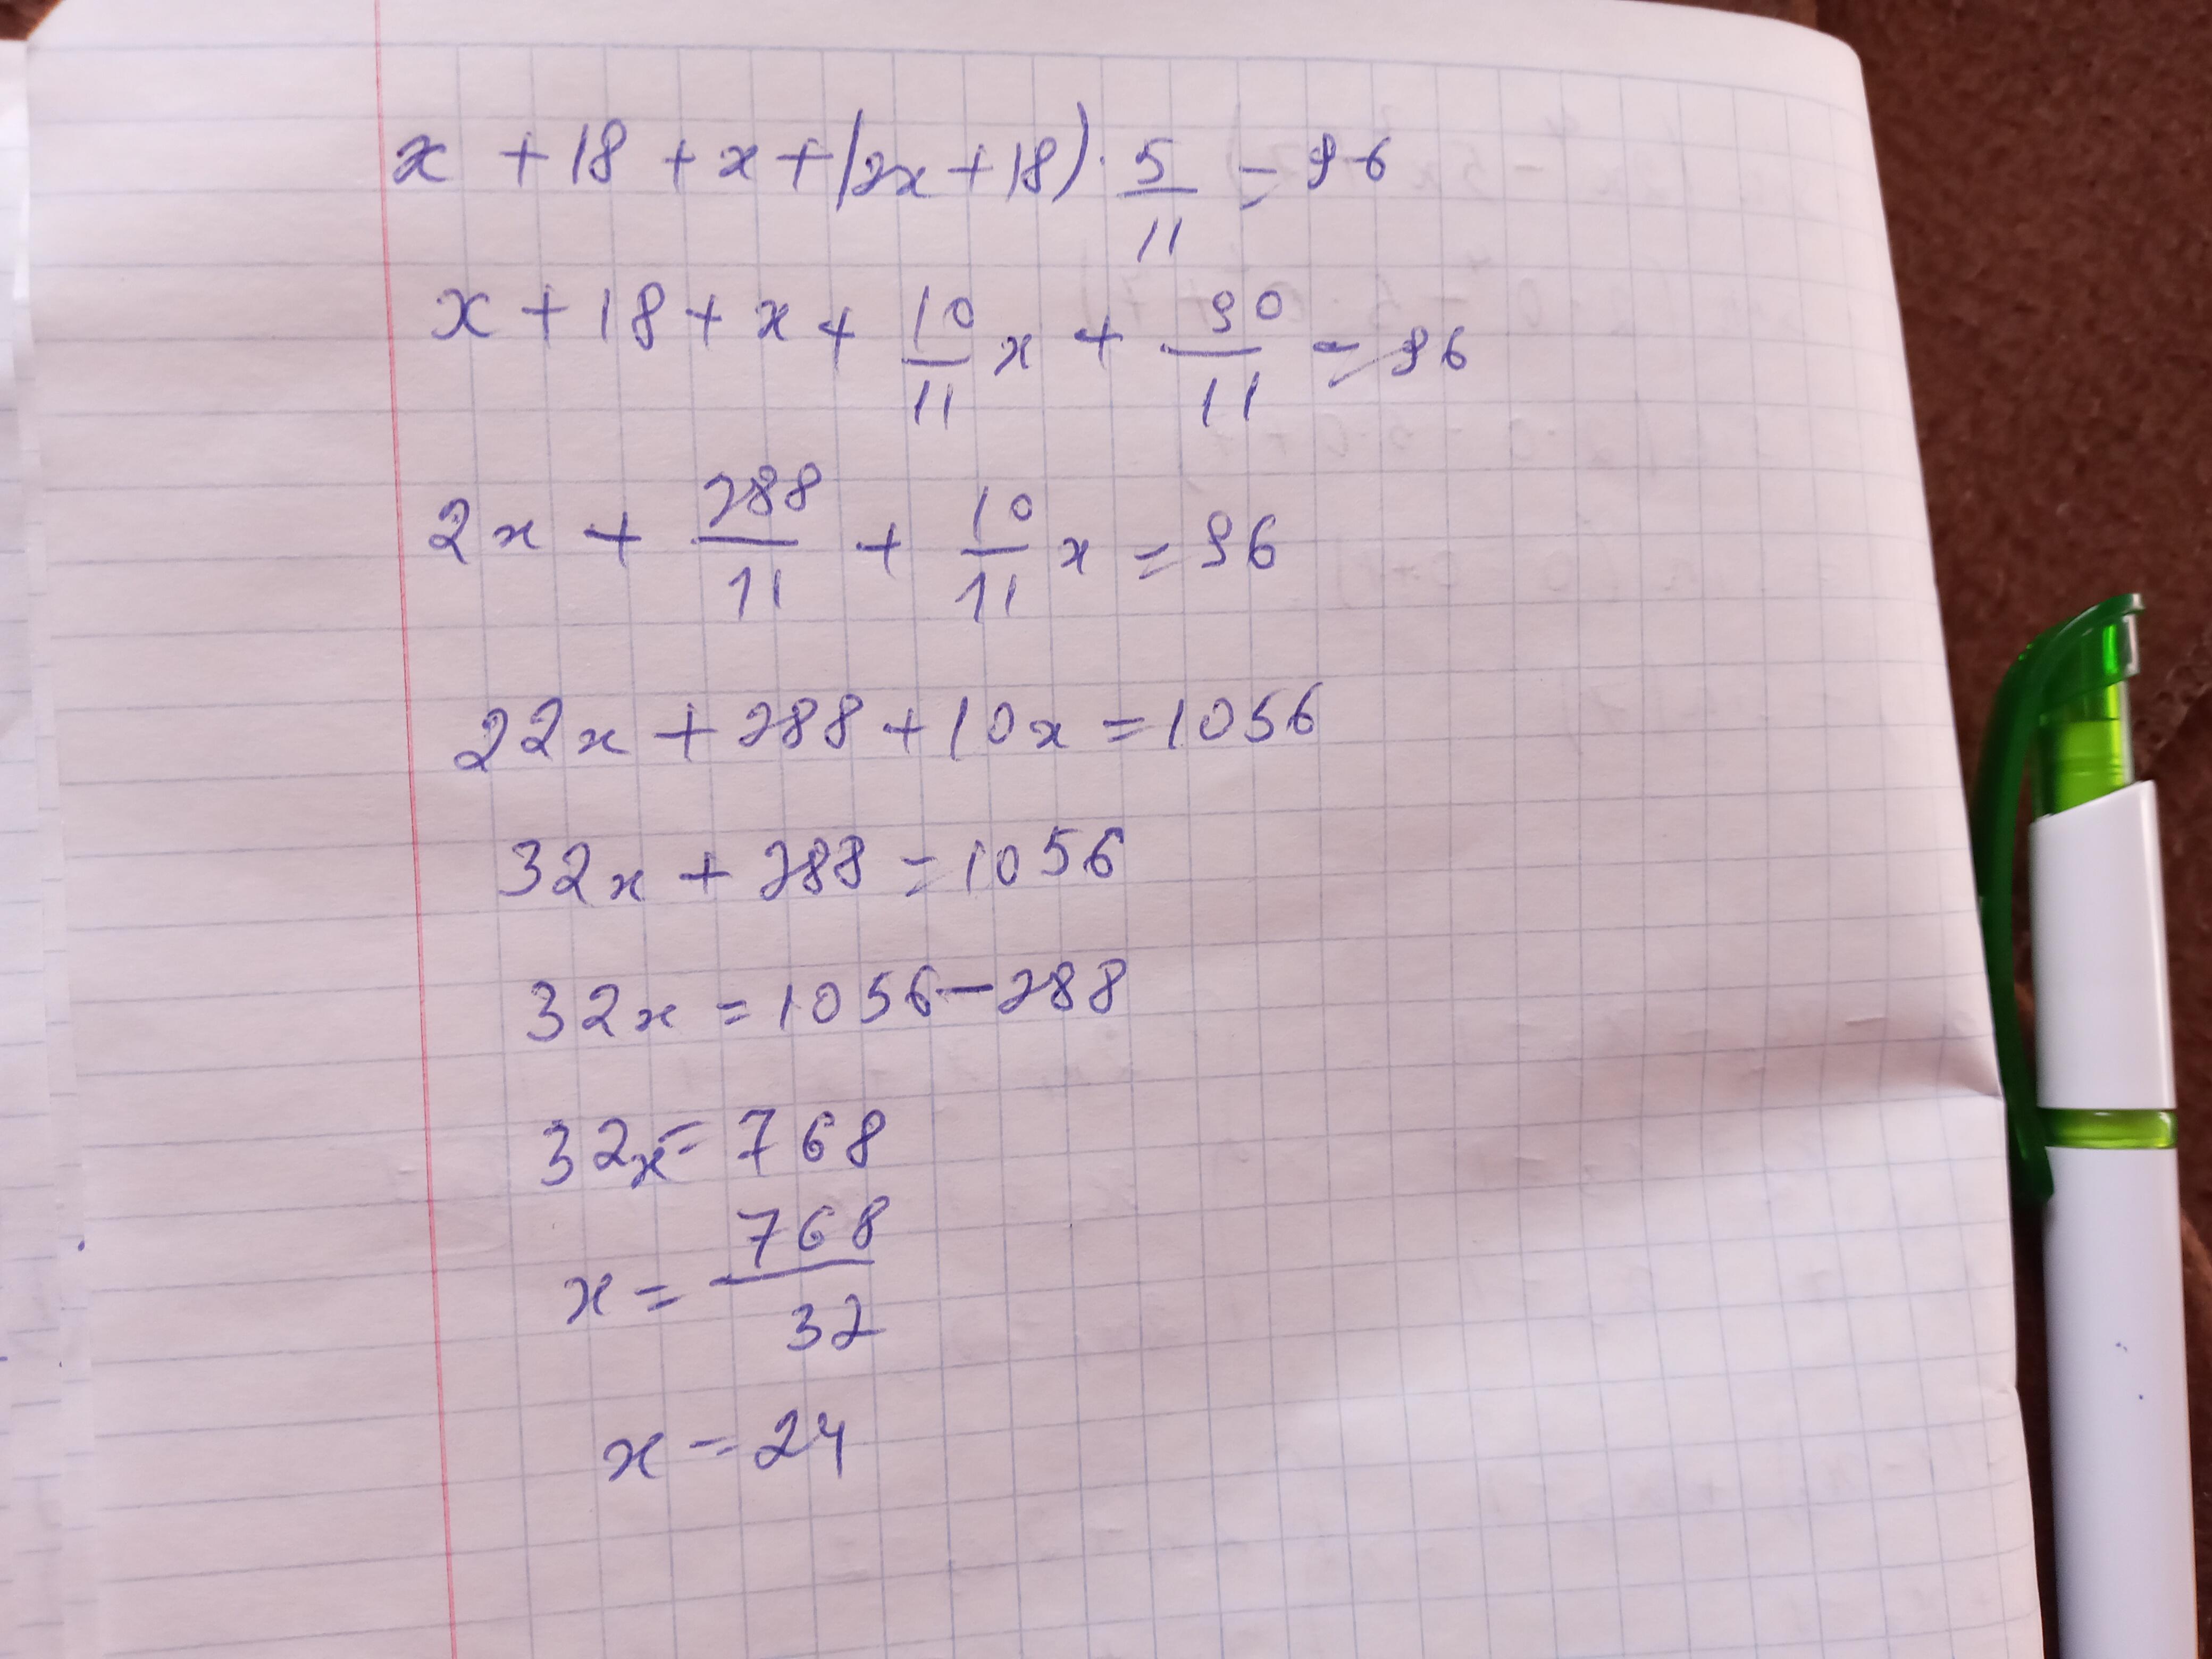 x + 18 + x + (2x + 18) · 5/11 = 96
x + 18 + x + 10/11 x + 90/11 = 96
2x + 288/11 + 10/11 x = 96
22x + 288 + 10x = 1056
32x + 288 = 1056
32x = 1056 - 288
32x = 768
x = 768/32
x = 24